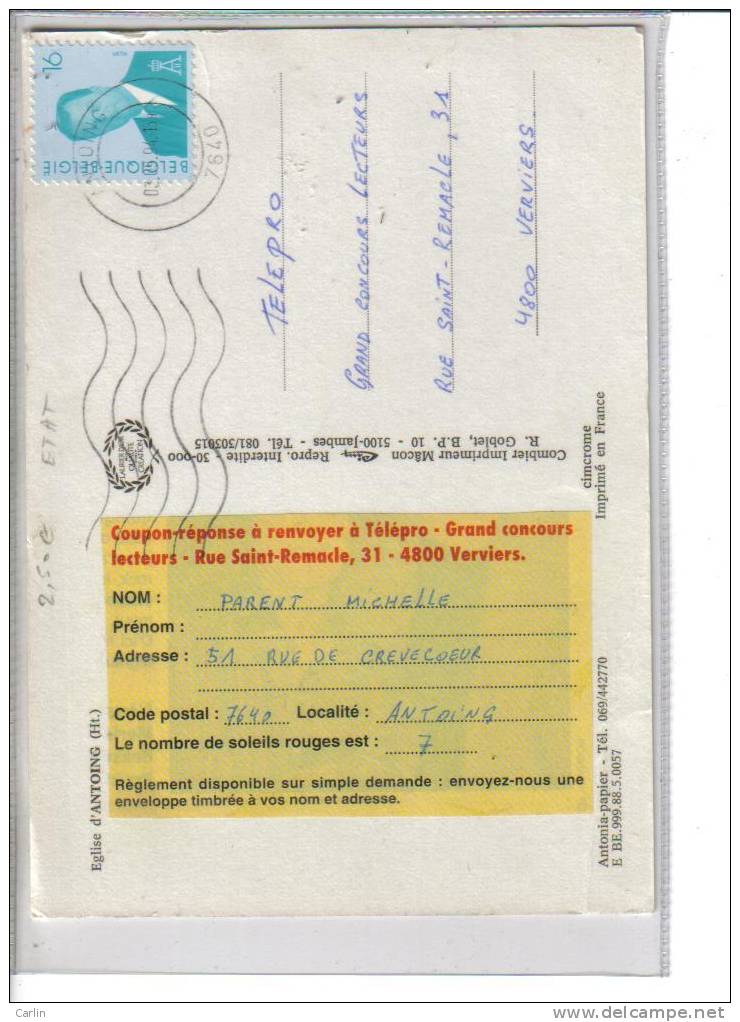 16
BELGIQUE·BELGIE
7640
TELEPRO
GRAND CONCOURS LECTEURS
RUE SAINT-REMACLE, 31
4800 VERVIERS.
2,50€ ETAT
Combier Imprimeur Mâcon Cim Repro. Interdite - 30-000
R. Goblet, B.P. 10 - 5100-Jambes - Tél. 081/303015
cimcrome
Imprimé en France
Coupon-réponse à renvoyer à Télépro - Grand concours
lecteurs - Rue Saint-Remacle, 31 - 4800 Verviers.
NOM : PARENT MICHELLE
Prénom :
Adresse : 51 RUE DE CREVECOEUR
Code postal : 7640 Localité : ANTOING
Le nombre de soleils rouges est : 7
Règlement disponible sur simple demande : envoyez-nous une
enveloppe timbrée à vos nom et adresse.
Eglise d'ANTOING (Ht.)
Antonia-papier - Tél. 069/442770
E BE.999.88.5.0057
Carlin
delcampe.net